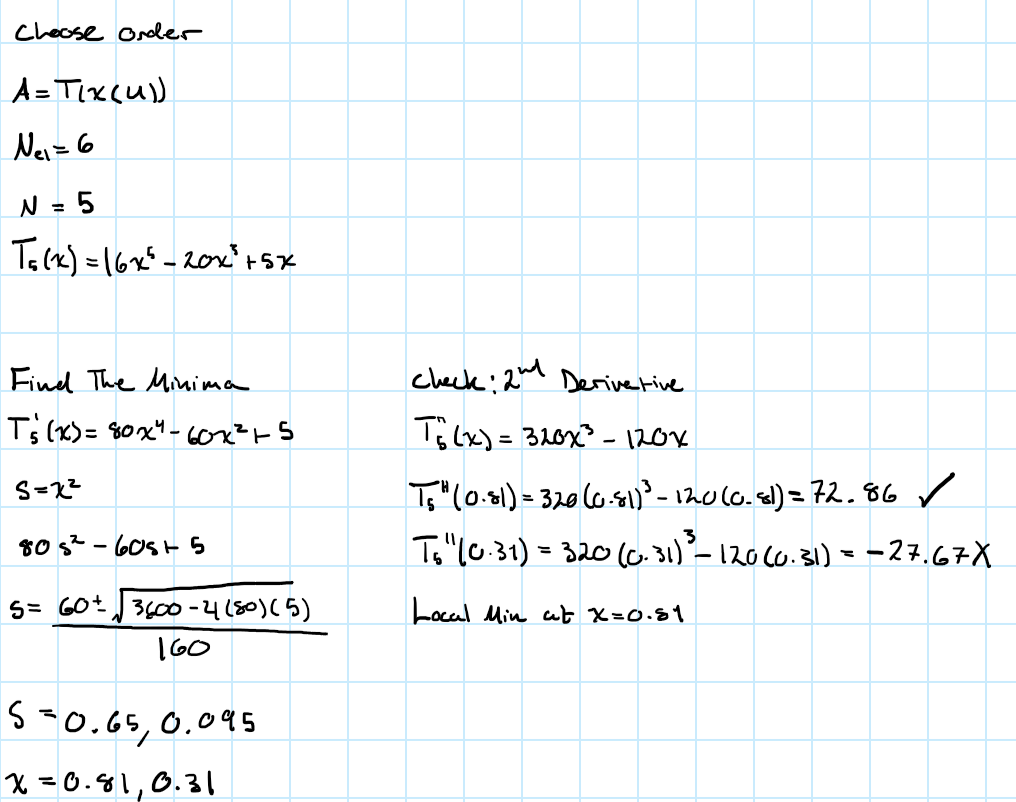 Choose order
A = T(x(u))
Nel = 6
N = 5
T₅(x) = 16x⁵ - 20x³ + 5x
Find The Minima
T₅'(x) = 80x⁴ - 60x² + 5
S = x²
80s² - 60s + 5
S = (60 ± √(3600 - 4(80)(5))) / 160
S = 0.65, 0.095
x = 0.81, 0.31
Check: 2nd Derivative
T₅"(x) = 320x³ - 120x
T₅"(0.81) = 320(0.81)³ - 120(0.81) = 72.86 ✓
T₅"(0.31) = 320(0.31)³ - 120(0.31) = -27.67 X
Local Min at x = 0.81